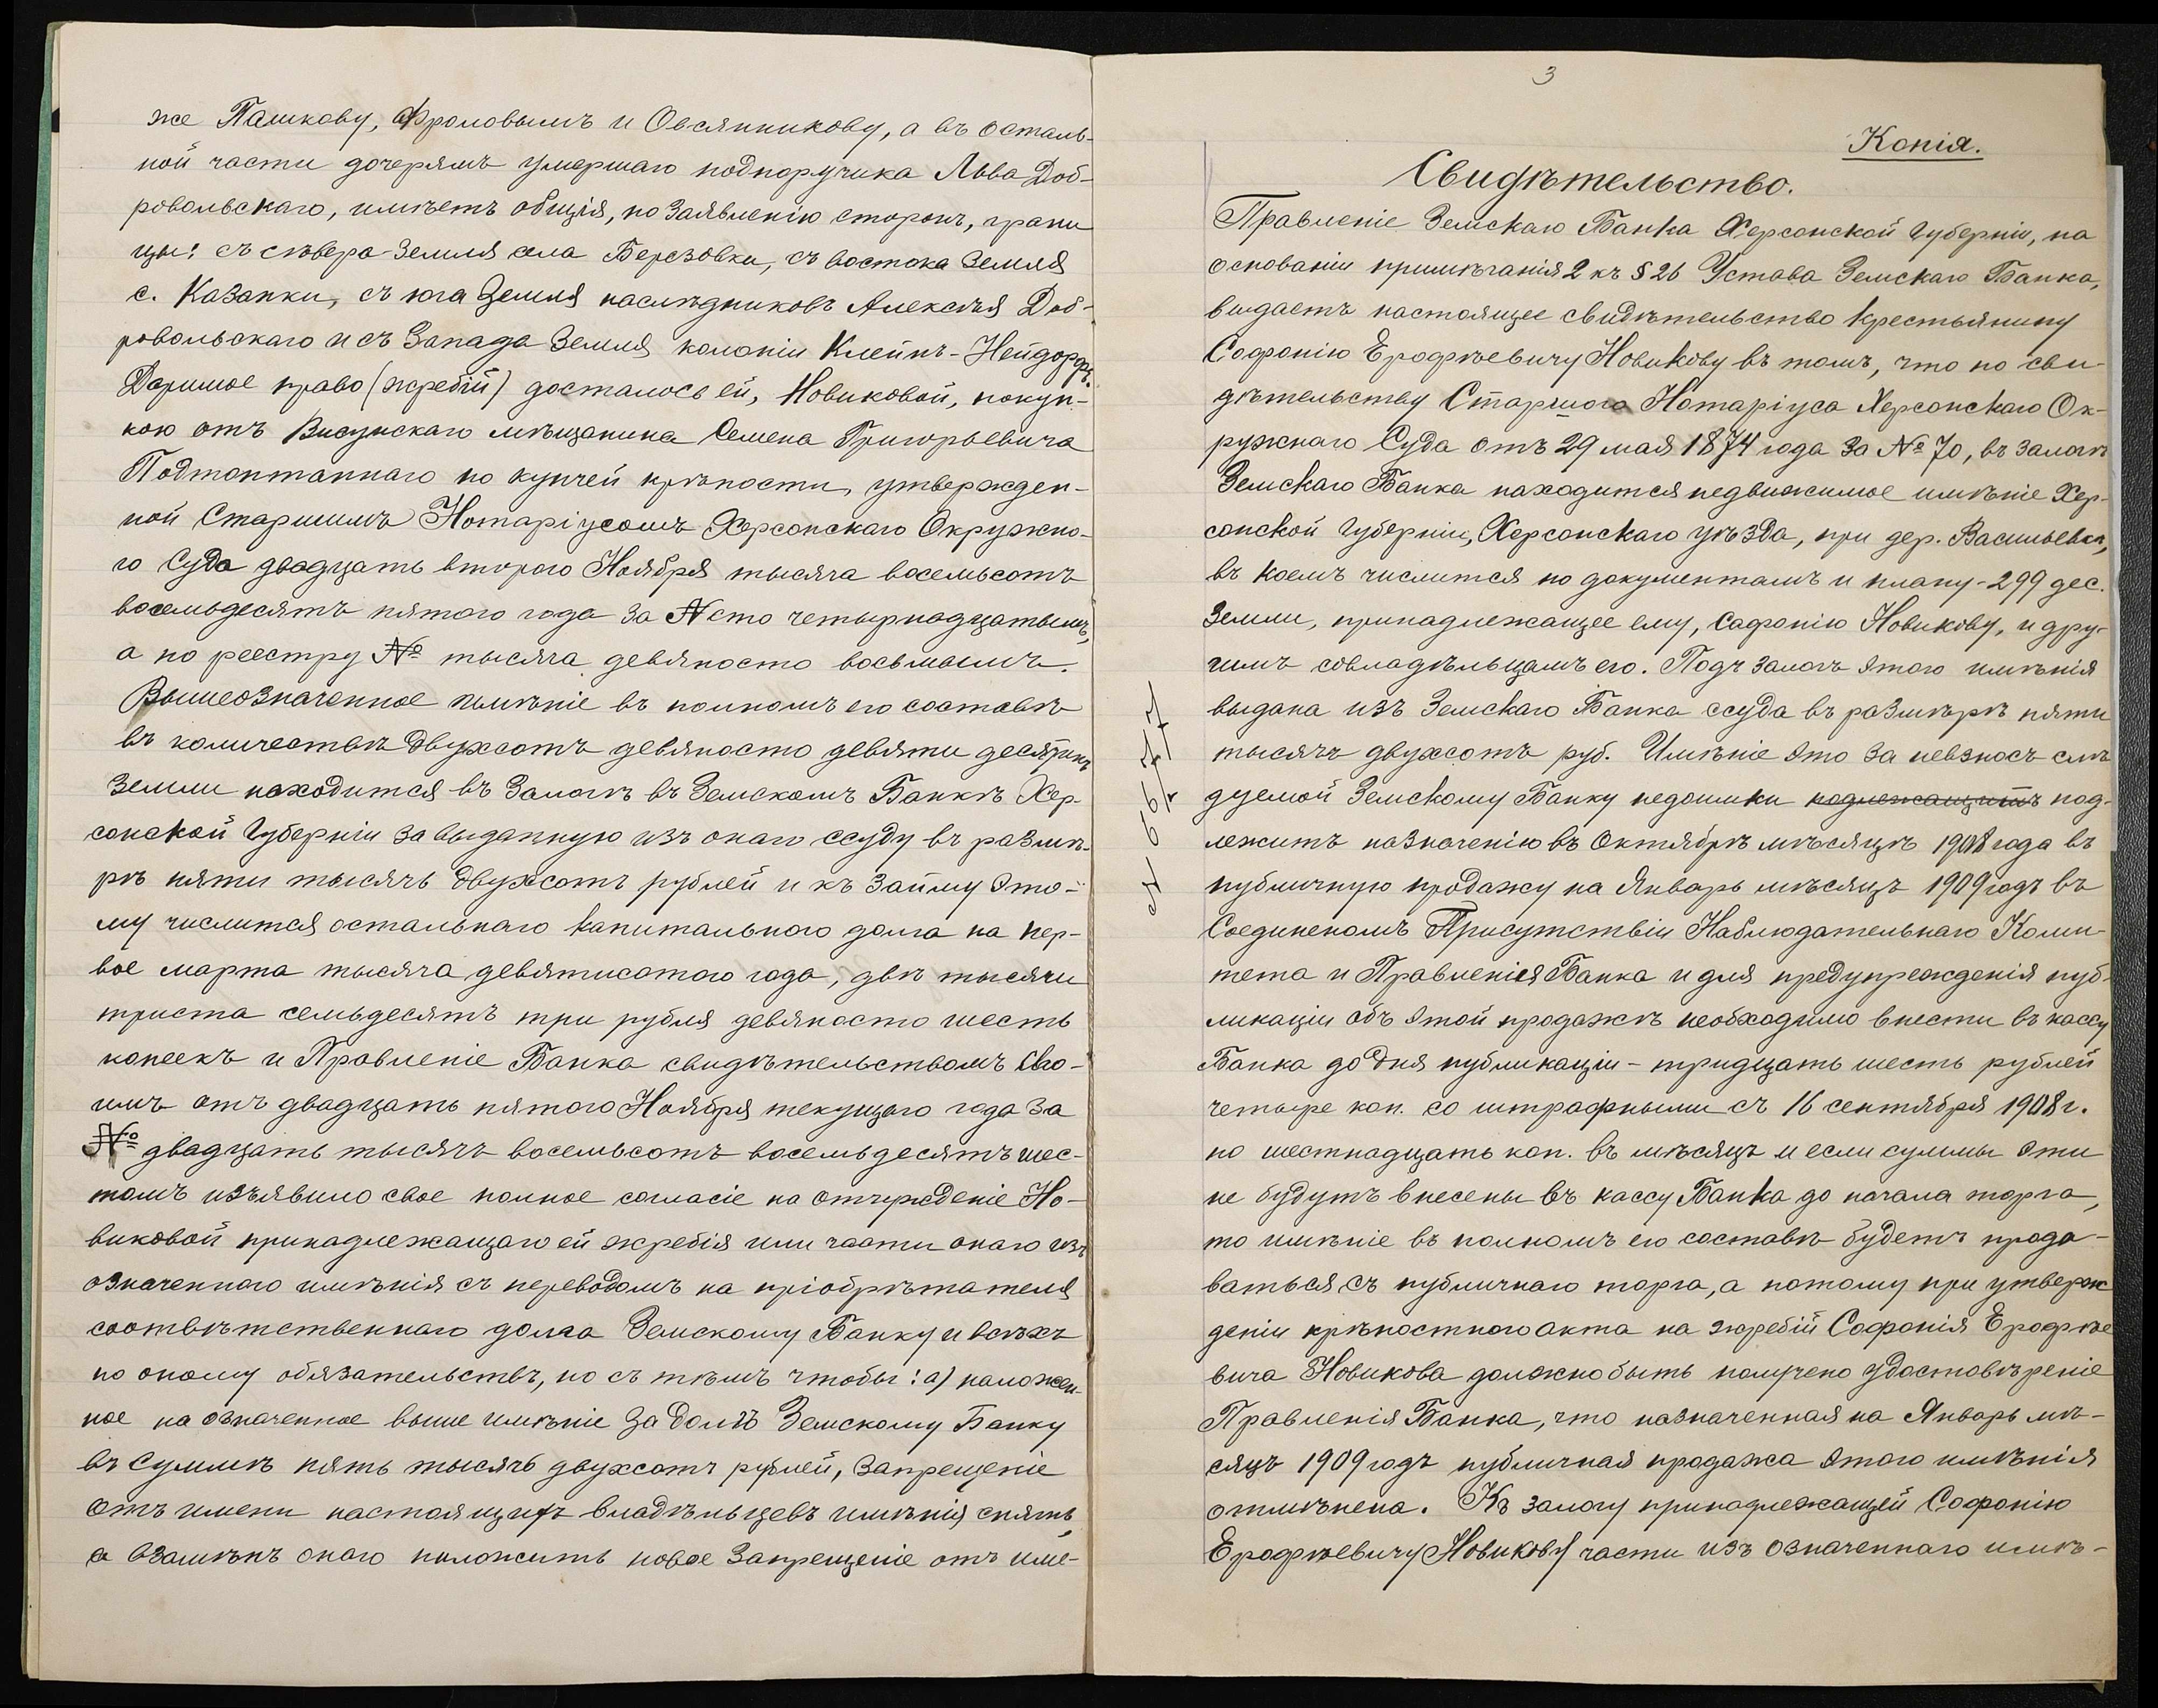 же Пашкову, Фроловымъ и Овсянникову, а въ осталь-
ной части дочерямъ умершаго подпоручика Льва Доб-
ровольскаго, имѣетъ общія, по заявленію сторонъ, грани
цы: съ сѣвера-земля села Березовки, съ востока земля
с. Казанки, съ юга земля наслѣдниковъ Алексѣя Доб-
ровольскаго и съ запада земля колоніи Клейнъ-Нейдорфъ.
Даримое право (жребій) досталось ей, Новиковой, покуп-
кою отъ Висунскаго мѣщанина Семена Григорьевича
Подтоптаннаго по купчей крѣпости, утвержден-
ной Старшимъ Нотаріусомъ Херсонскаго Окружно-
го Суда двадцать второго Ноября тысяча восемьсотъ
восемьдесятъ пятого года за № сто четырнадцатымъ,
а по реестру № тысяча девяносто восьмымъ.
Вышеозначенное имѣніе въ полномъ его составѣ
въ количествѣ двухсотъ девяносто девяти десятинъ
земли находится въ залогѣ въ Земскомъ Банкѣ Хер-
сонской Губерніи за выданную изъ онаго ссуду въ размѣ-
рѣ пяти тысячъ двухсотъ рублей и къ займу это-
му числится остальнаго капитальнаго долга на пер-
вое марта тысяча девятисотого года, двѣ тысячи
триста семьдесятъ три рубля девяносто шесть
копеекъ и Правленіе Банка свидѣтельствомъ сво-
имъ отъ двадцать пятого Ноября текущаго года за
№ двадцать тысячъ восемьсотъ восемьдесятъ шес-
томъ изъявило свое полное согласіе на отчужденіе Но-
виковой принадлежащаго ей жребія или части онаго изъ
означеннаго имѣнія съ переводомъ на пріобрѣтателя
соотвѣтственнаго долга Земскому Банку и всѣхъ
по оному обязательствъ, но съ тѣмъ чтобы: а) наложен-
ное на означенное выше имѣніе за долгъ Земскому Банку
въ суммѣ пять тысячъ двухсотъ рублей, запрещеніе
отъ имени настоящихъ владѣльцевъ имѣнія снять,
а взамѣнъ онаго наложить новое запрещеніе отъ име-
3
Копія.
Свидѣтельство.
Правленіе Земскаго Банка Херсонской Губерніи, на
основаніи примѣчанія 2 къ § 26 Устава Земскаго Банка,
выдаетъ настоящее свидѣтельство крестьянину
Софонію Ерофѣевичу Новикову въ томъ, что по сви-
дѣтельству Старшаго Нотаріуса Херсонскаго Ок-
ружнаго Суда отъ 29 мая 1874 года за № 70, въ залогѣ
Земскаго Банка находится недвижимое имѣніе Хер-
сонской Губерніи, Херсонскаго уѣзда, при дер. Васильевкѣ,
въ коемъ числится по документамъ и плану - 299 дес.
земли, принадлежащее ему, Сафонію Новикову, и дру-
гимъ совладѣльцамъ его. Подъ залогъ этого имѣнія
выдана изъ Земскаго Банка ссуда въ размѣрѣ пяти
тысячъ двухсотъ руб. Имѣніе это за невзносъ слѣ
дуемой Земскому Банку недоимки подлежащитъ под-
лежитъ назначенію въ Октябрѣ мѣсяцѣ 1908 года въ
публичную продажу на Январь мѣсяцъ 1909 годъ въ
Соединеномъ Присутствіи Наблюдательнаго Коми-
тета и Правленія Банка и для предупрежденія пуб-
ликаціи объ этой продажѣ необходимо внести въ кассу
Банка до дня публикаціи - тридцать шесть рублей
четыре коп. со штрафными съ 16 сентября 1908 г.
по шестнадцать коп. въ мѣсяцъ и если суммы эти
не будутъ внесены въ кассу Банка до начала торга,
то имѣніе въ полномъ его составѣ будетъ прода-
ваться съ публичнаго торга, а потому при утверж
деніи крѣпостного акта на жребій Софонія Ерофѣе
вича Новикова должно быть получено удостовѣреніе
Правленія Банка, что назначенная на Январь мѣ-
сяцъ 1909 годъ публичная продажа этого имѣнія
отмѣнена. Къ залогу принадлежащей Софонію
Ерофѣевичу Новикову части изъ означеннаго имѣ-